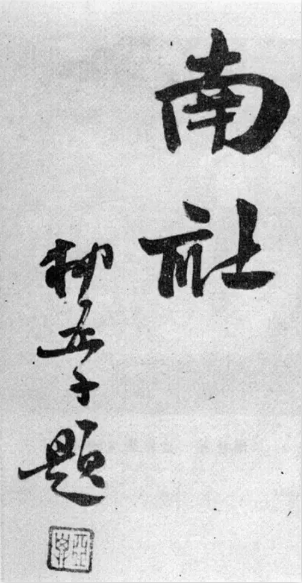 南社
柳亞子題